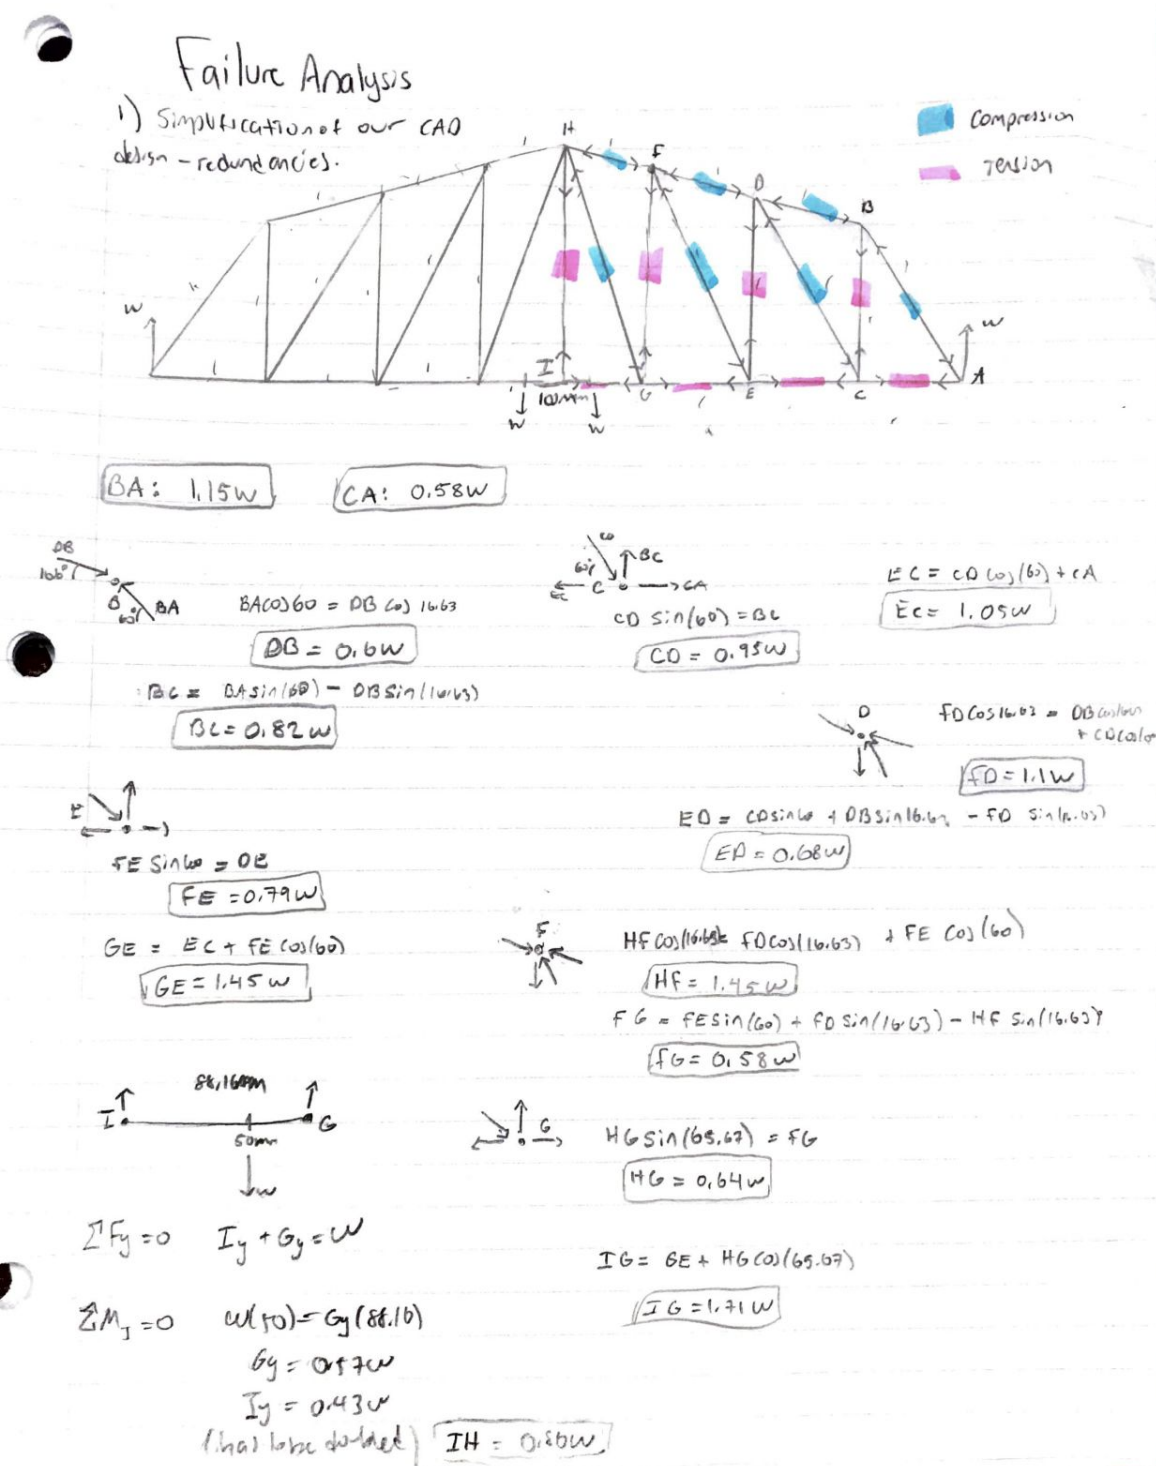 Failure Analysis
1) Simplification of our CAD
design - redundancies.
Compression
Tension
H
F
D
B
W
W
I
100mm
G
E
C
A
W
W
BA: 1.15W
CA: 0.58W
DB
B
60°
BA
BA cos 60 = DB cos 16.63
DB = 0.6W
BC = BA sin(60) - DB sin(16.63)
BC = 0.82W
CD
60°
BC
EC
C
CA
CD sin(60) = BC
CD = 0.95W
EC = CD cos(60) + CA
EC = 1.05W
D
FD cos 16.63 = DB cos 16.63
+ CD cos 60
FD = 1.1W
ED = CD sin 60 + DB sin 16.63 - FD sin(16.63)
ED = 0.68W
E
FE sin 60 = DE
FE = 0.79W
GE = EC + FE cos(60)
GE = 1.45W
F
HF cos(16.63) = FD cos(16.63) + FE cos(60)
HF = 1.45W
FG = FE sin(60) + FD sin(16.63) - HF sin(16.63)
FG = 0.58W
88.16mm
I
G
50mm
W
G
HG sin(65.67) = FG
HG = 0.64W
ΣFy = 0 Iy + Gy = W
IG = GE + HG cos(65.67)
IG = 1.71W
ΣM_I = 0 W(50) = Gy(88.16)
Gy = 0.57W
Iy = 0.43W
(has to be doubled) IH = 0.86W